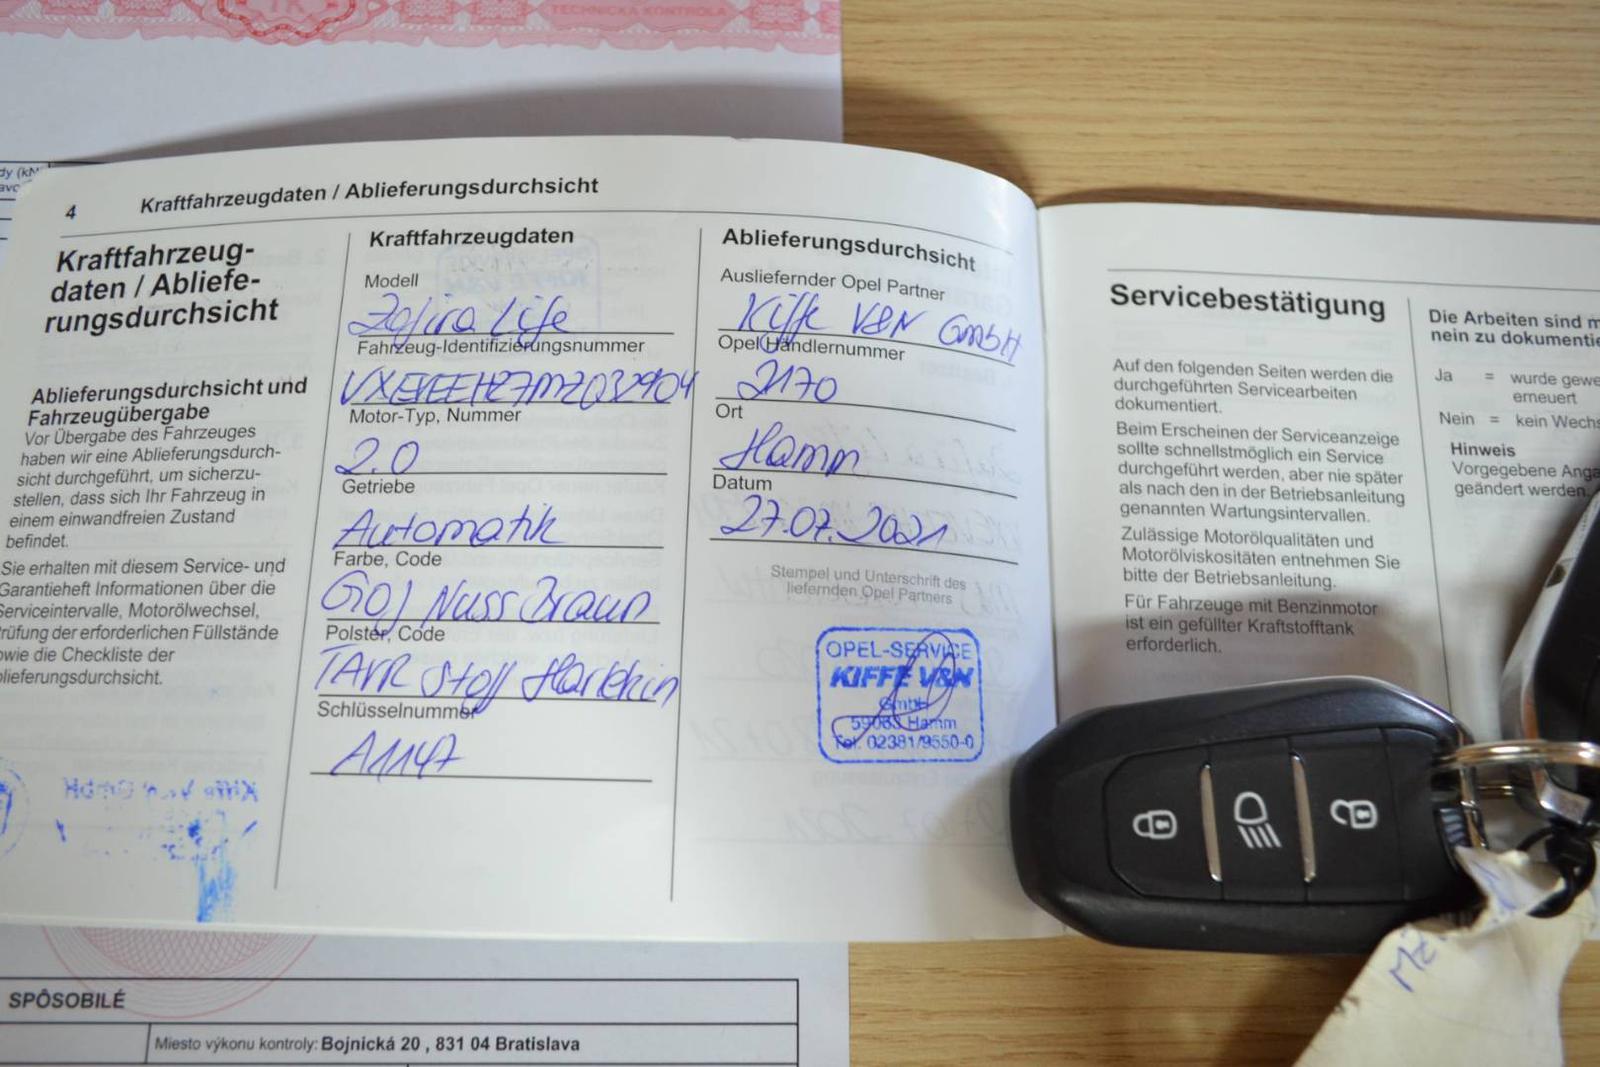 TECHNICKÁ KONTROLA
4
Kraftfahrzeugdaten / Ablieferungsdurchsicht
Kraftfahrzeug-
daten / Abliefe-
rungsdurchsicht
Ablieferungsdurchsicht und
Fahrzeugübergabe
Vor Übergabe des Fahrzeuges
haben wir eine Ablieferungsdurch-
sicht durchgeführt, um sicherzu-
stellen, dass sich Ihr Fahrzeug in
einem einwandfreien Zustand
befindet.
Sie erhalten mit diesem Service- und
Garantieheft Informationen über die
Serviceintervalle, Motorölwechsel,
rüfung der erforderlichen Füllstände
owie die Checkliste der
blieferungsdurchsicht.
Kraftfahrzeugdaten
Modell
Zafira Life
Fahrzeug-Identifizierungsnummer
Motor-Typ, Nummer
2.0
Getriebe
Automatik
Farbe, Code
Nuss Braun
Polster, Code
Stoff
Schlüsselnummer
A1147
Ablieferungsdurchsicht
Ausliefernder Opel Partner
Kiffe V&N GmbH
Opel Händlernummer
2170
Ort
Hamm
Datum
27.07.2021
Stempel und Unterschrift des
liefernden Opel Partners
OPEL-SERVICE
KIFFE V&N
GmbH
59063 Hamm
Tel. 02381/9550-0
Servicebestätigung
Auf den folgenden Seiten werden die
durchgeführten Servicearbeiten
dokumentiert.
Beim Erscheinen der Serviceanzeige
sollte schnellstmöglich ein Service
durchgeführt werden, aber nie später
als nach den in der Betriebsanleitung
genannten Wartungsintervallen.
Zulässige Motorölqualitäten und
Motorölviskositäten entnehmen Sie
bitte der Betriebsanleitung.
Für Fahrzeuge mit Benzinmotor
ist ein gefüllter Kraftstofftank
erforderlich.
Die Arbeiten sind m
nein zu dokumentie
Ja = wurde gewe
erneuert
Nein = kein Wechs
Hinweis
Vorgegebene Anga
geändert werden.
SPÔSOBILÉ
Miesto výkonu kontroly: Bojnická 20 , 831 04 Bratislava